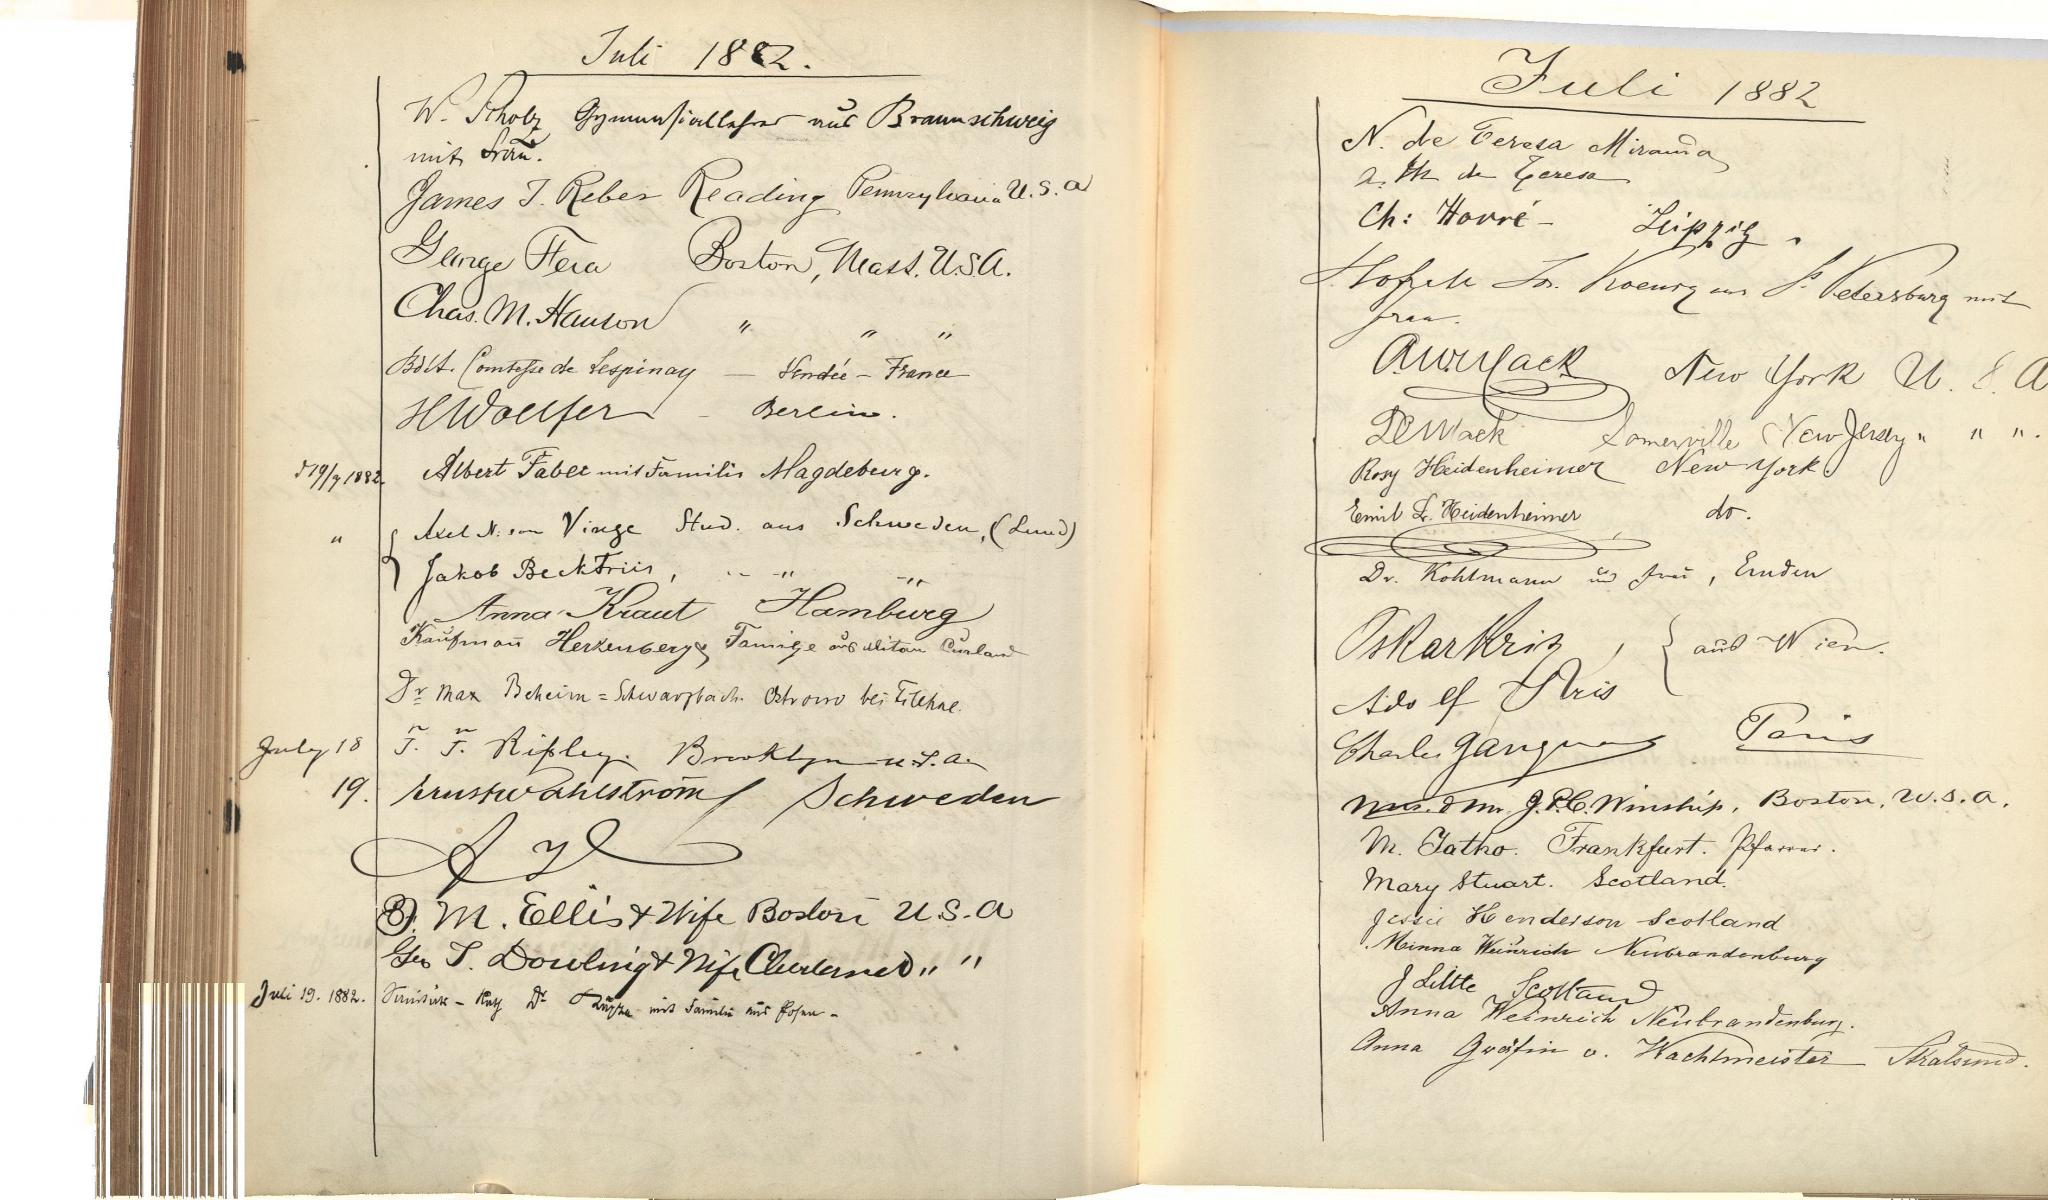 Juli 1882.
W. Scholz Gymnasiallehrer aus Braunschweig
mit Frau.
James T. Reber Reading Pennsylvania U.S.A
George Fera Boston, Mass. U.S.A.
Chas. M. Hanson " " "
Comtesse de Lespinay — Vendée — France
HWolffer - Berlin.
1882. Albert Faber mit Familie Magdeburg.
" Axel N. von Vinge Stud. aus Schweden, (Lund)
Jakob Beck Friis, " "
Anna Kraut Hamburg
Kaufmann Herzenberg & Familie aus Mitau Curland
Dr Max Beheim=Schwarzbach Ostrowo bei Filehne.
July 18 Ripley. Brooklyn U.S.A.
19. Ernst Wahlström Schweden
M. Ellis & Wife Boston U.S.A
Geo T. Dowling & Wife Cleveland " "
Juli 19. 1882. Dr mit Familie aus Posen -
Juli 1882
N. de Teresa Miranda
a. M de Teresa
Ch: Horré - Leipzig.
Koenig aus St Petersburg mit
Frau.
New York U.S.A
Mack Somerville New Jersey " " ".
Rosy Heidenheimer New York.
Emil L. Heidenheimer do.
Dr. Kohlmann und Frau, Emden
Oskar Kris, aus Wien.
Adolf Kris
Charles Paris
Mrs. & Mr. J.P.C. Winship, Boston, U.S.A.
M. Jatho. Frankfurt. Pfarrer.
Mary Stuart. Scotland.
Jessie Henderson Scotland
Minna Weinrich Neubrandenburg
J Scotland
Anna Weinrich Neubrandenburg.
Anna Gräfin v. Wachtmeister Stralsund.